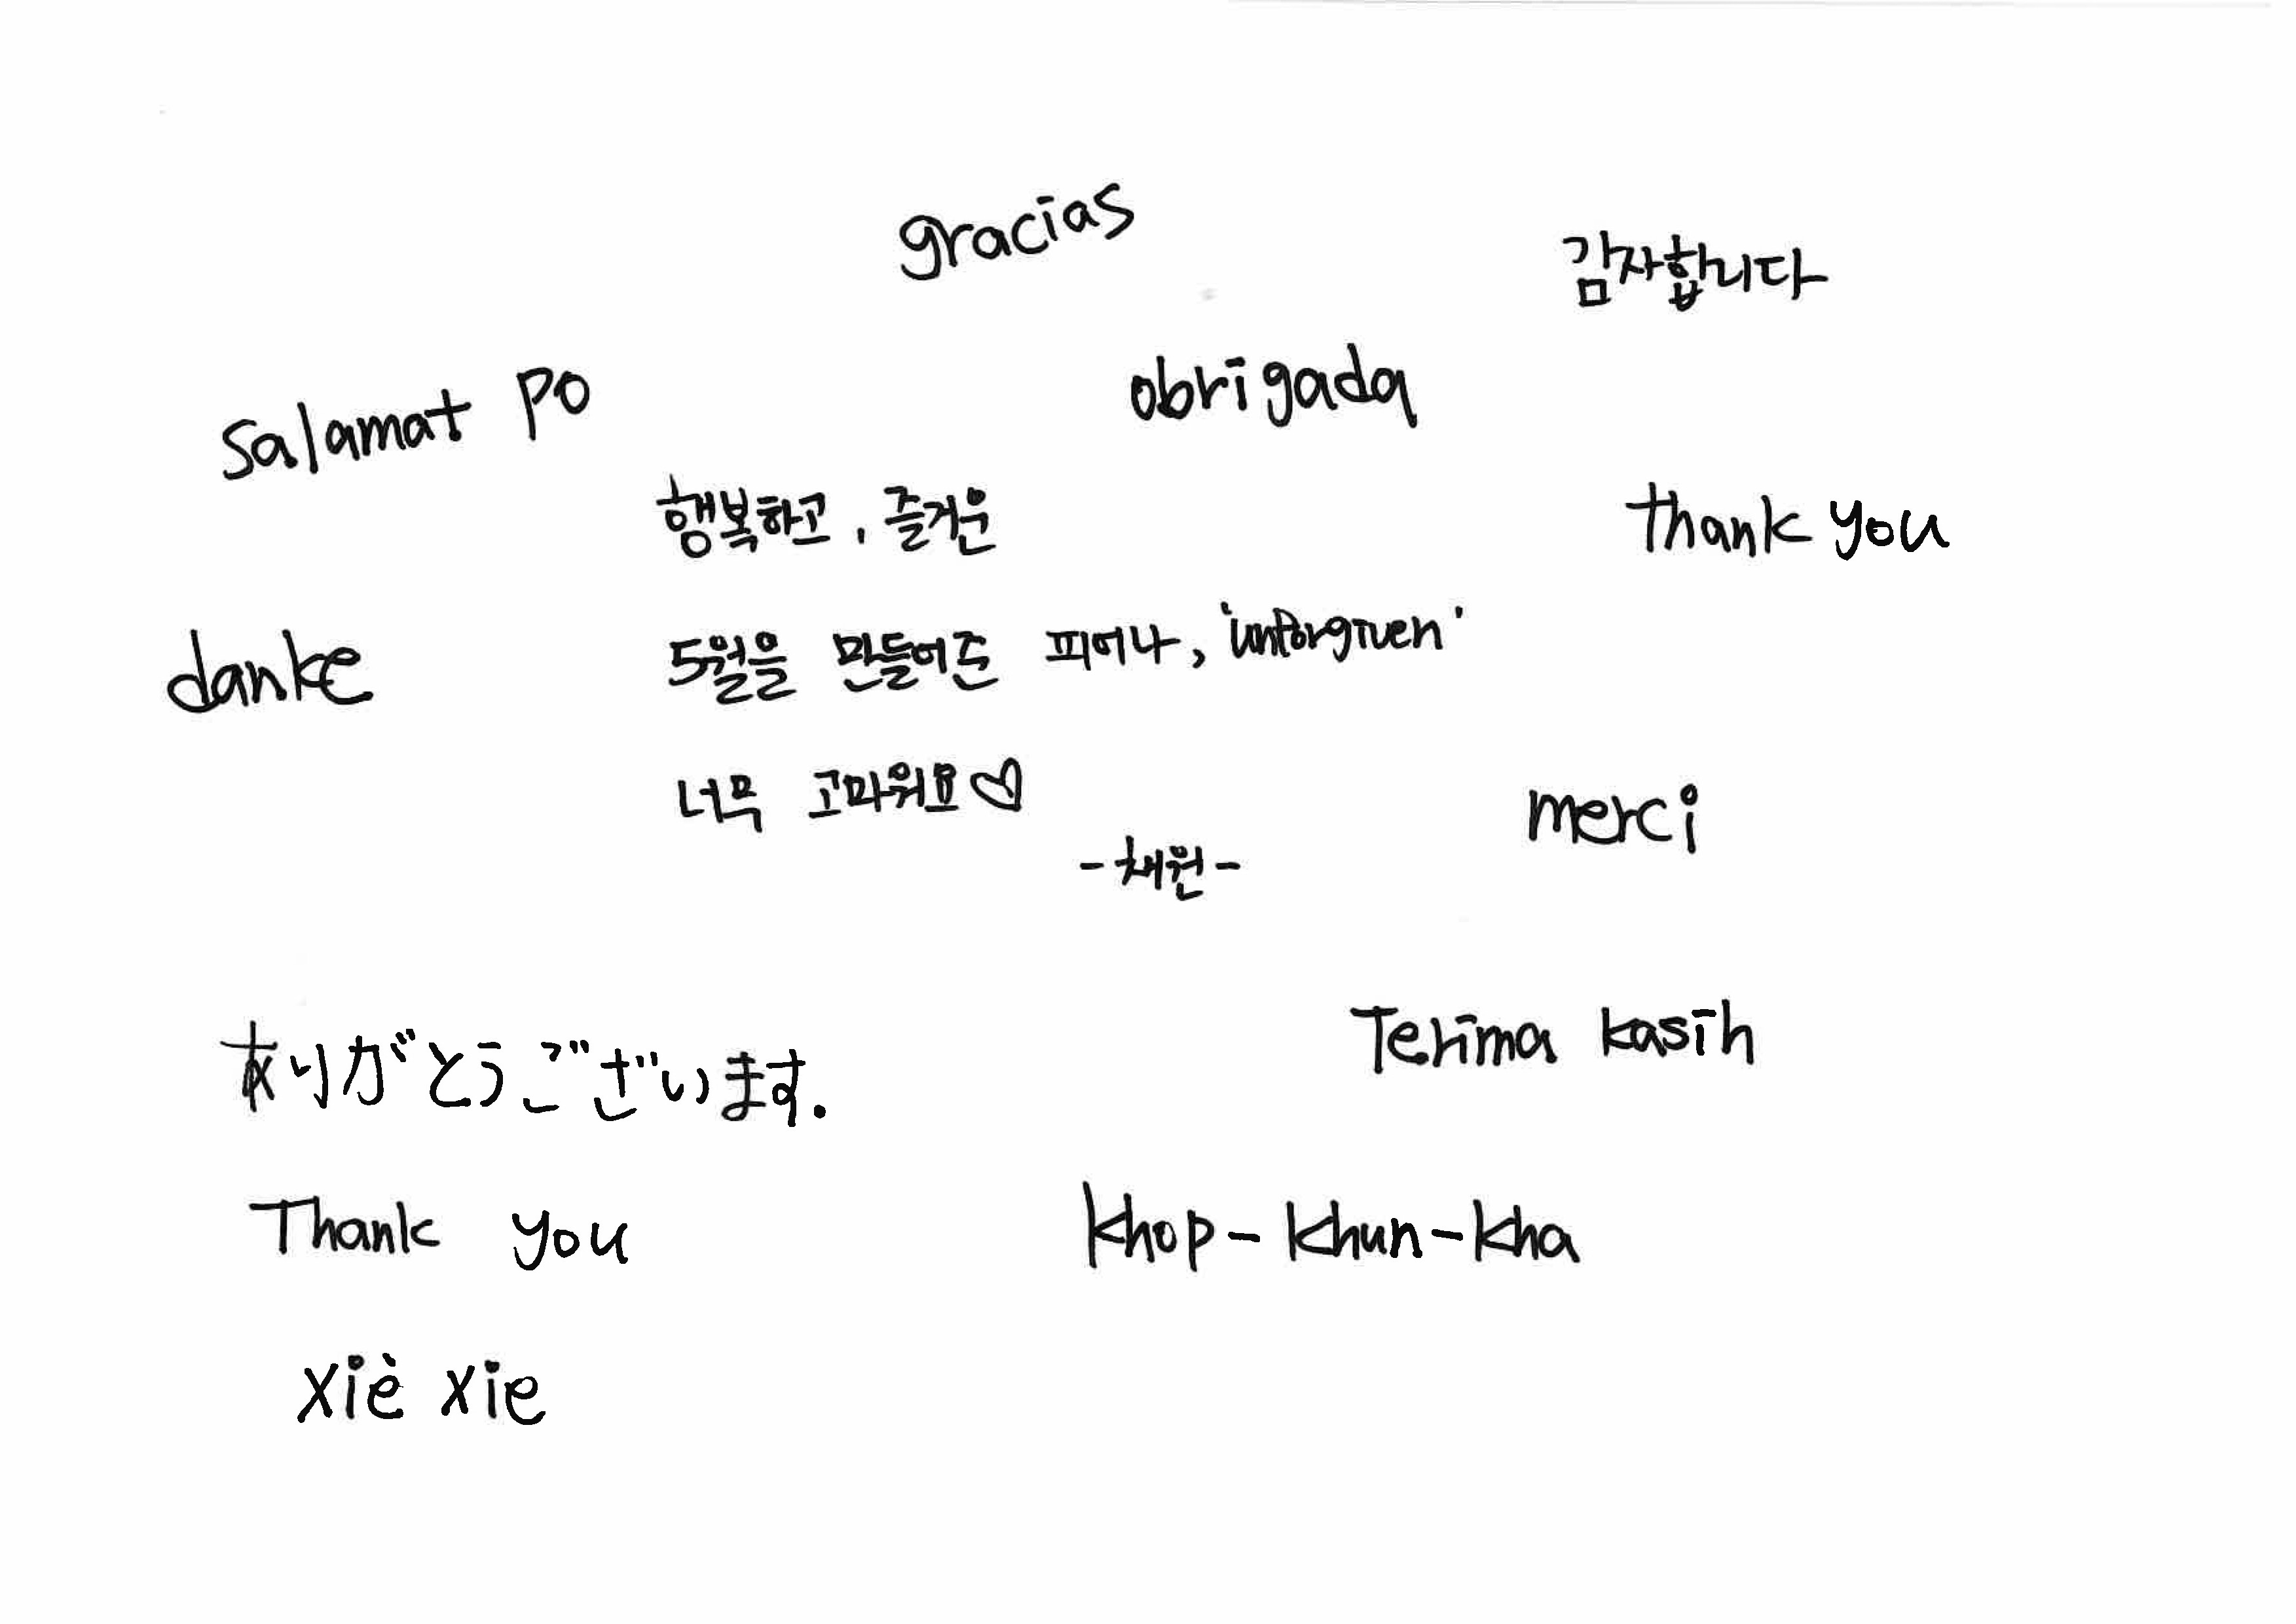 gracias
감사합니다
salamat po
obrigada
행복하고, 즐거운
thank you
5월을 만들어준 피어나, 'unforgiven'
danke
너무 고마워요♡
merci
-채원-
ありがとうございます.
Terima kasih
Thank you
khop-khun-kha
xiè xie